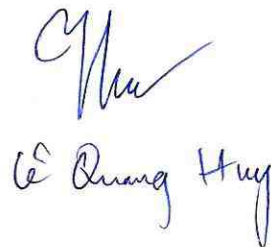 Lê Quang Huy